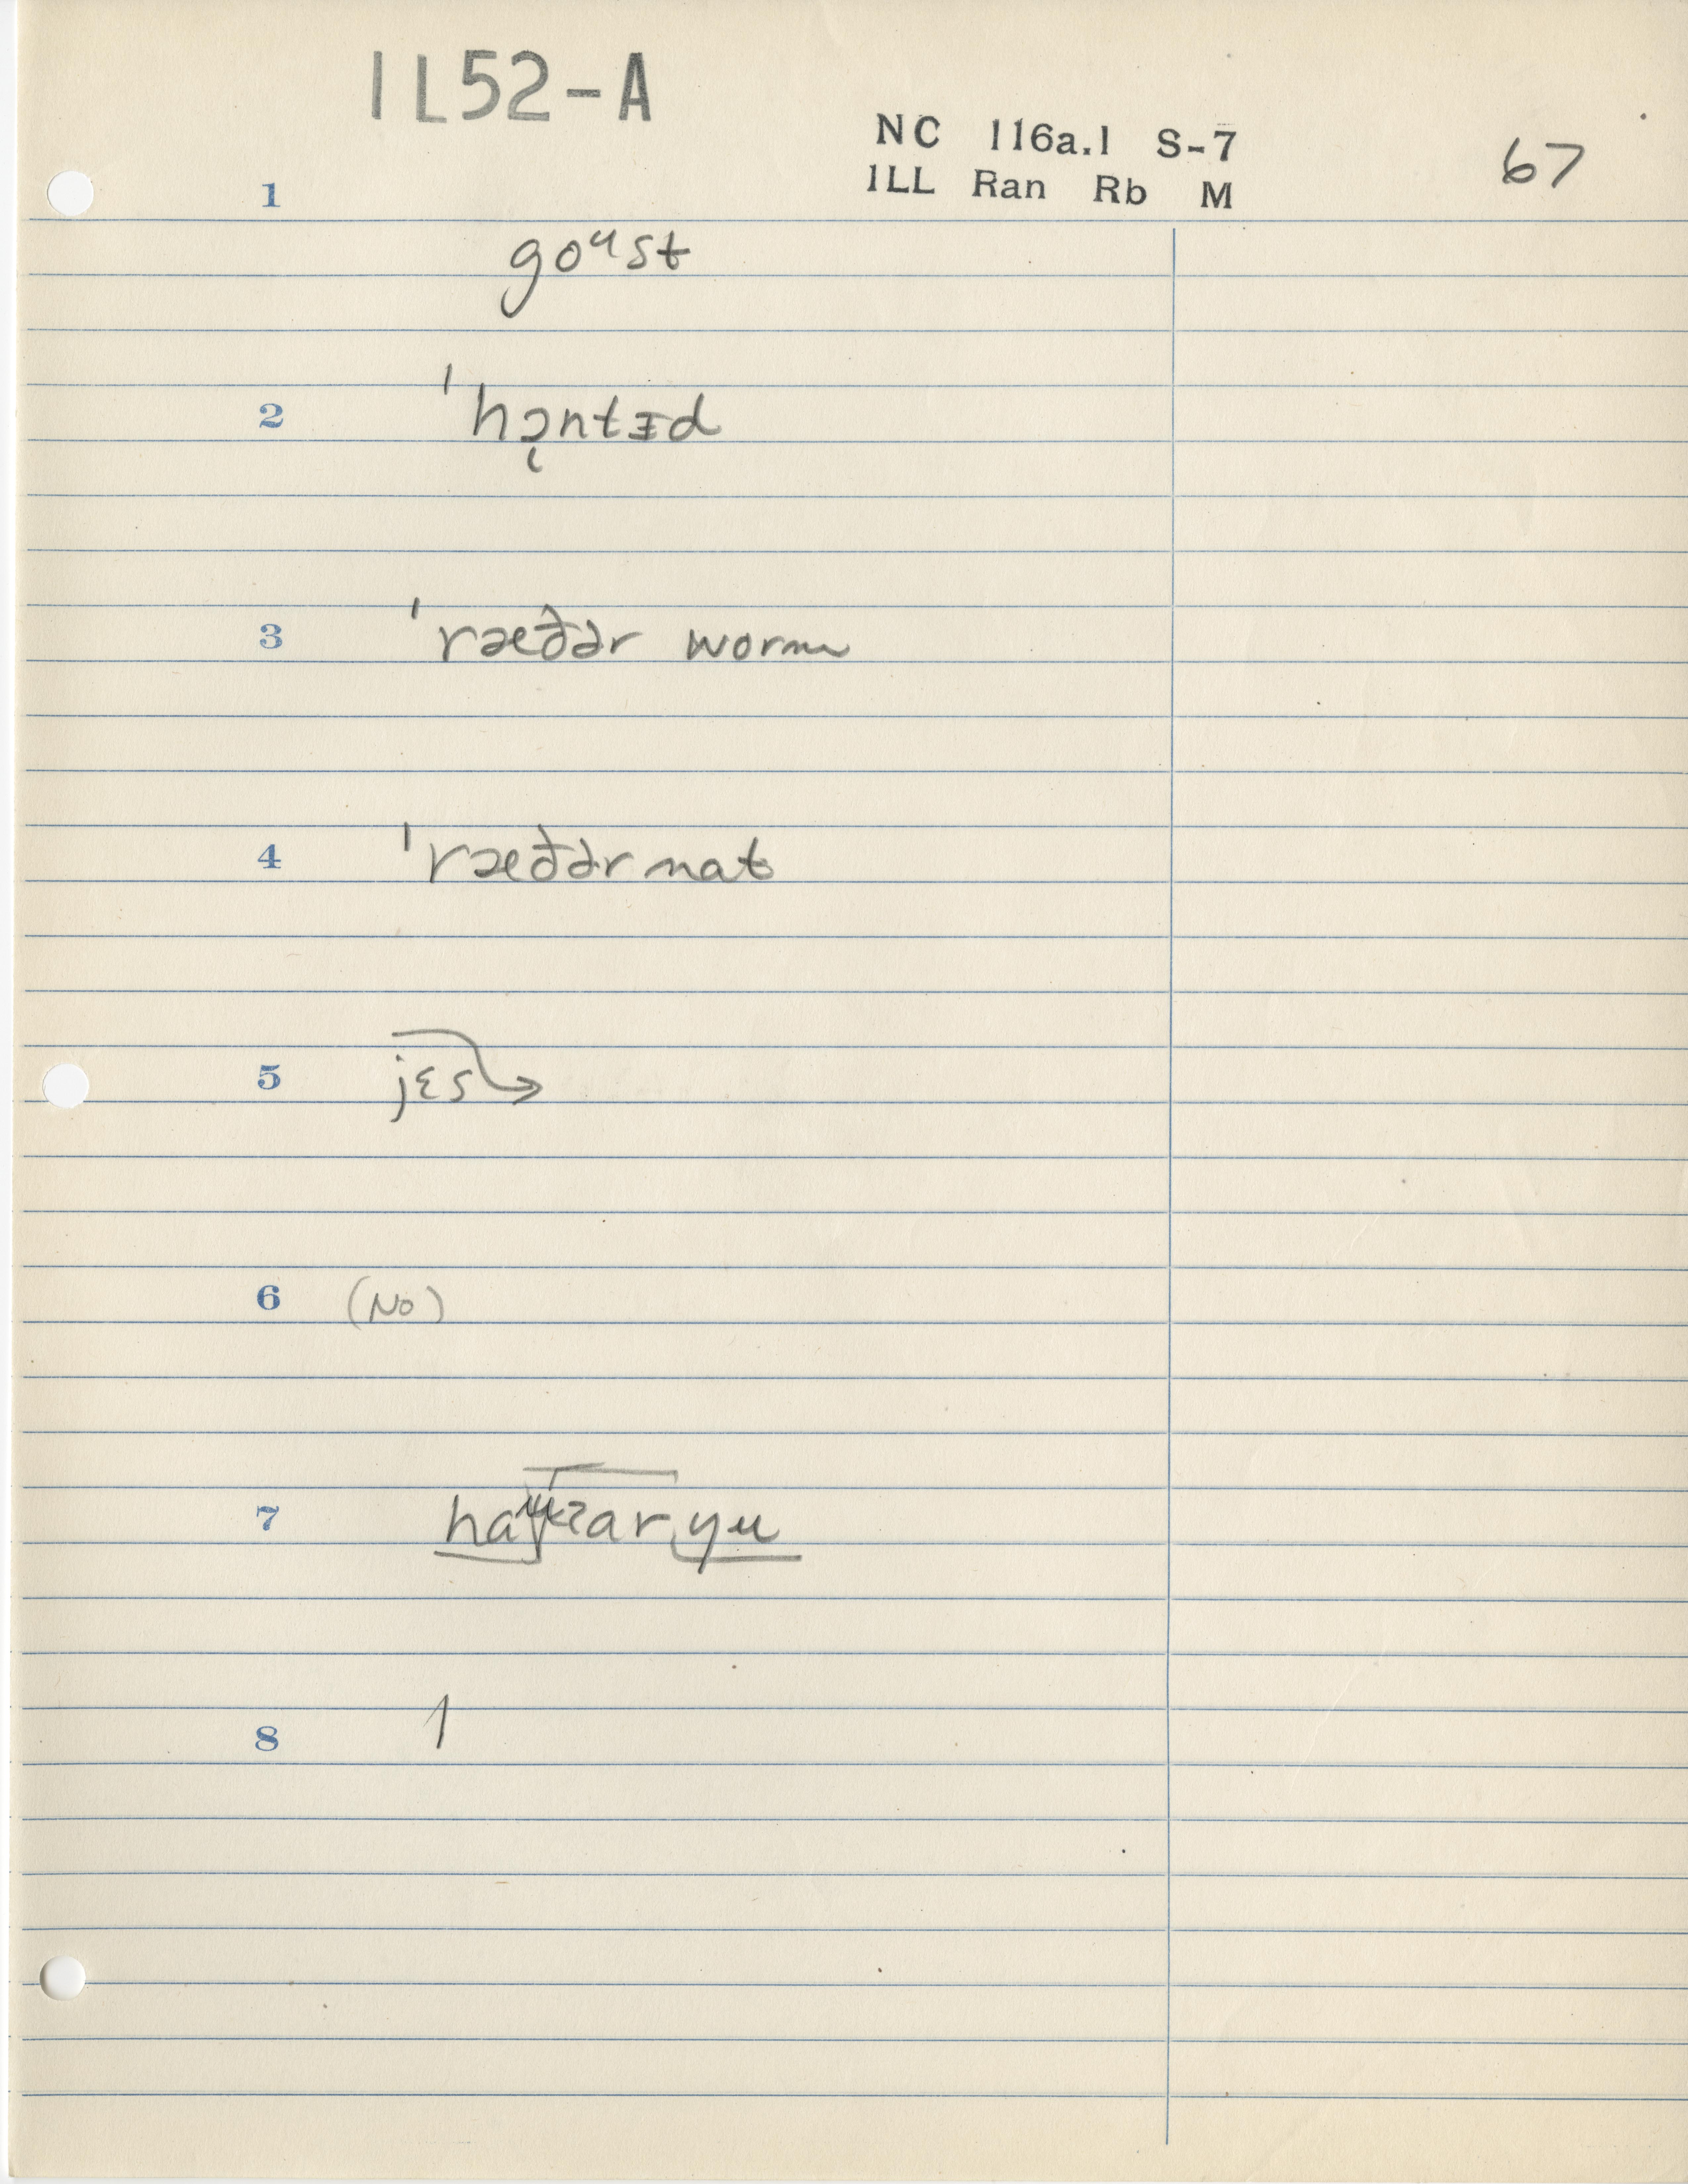 IL52-A
NC 116a.1 S-7
ILL Ran Rb M
67
1
goᵘst
2
ˈhɔ̜ntɪd
3
ˈræðər worm
4
ˈræðər nat
5
jɛs
6 (NO)
7
ar yu
8